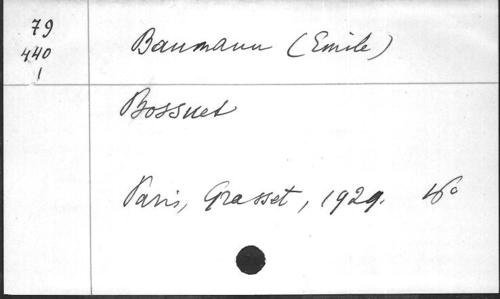 79
440
1
Baumann (Emile)
Bossuet
Paris, Grasset, 1929. 16°